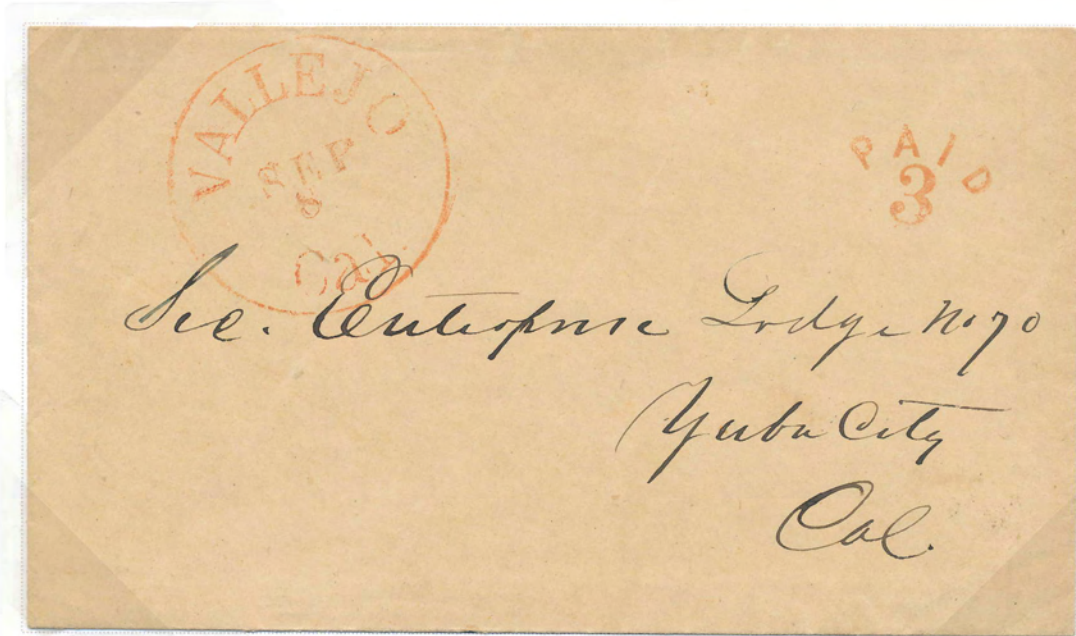 VALLEJO
SEP
8
Cal.
PAID
3
Sec. Enterprise Lodge No 70
Yuba City
Cal.